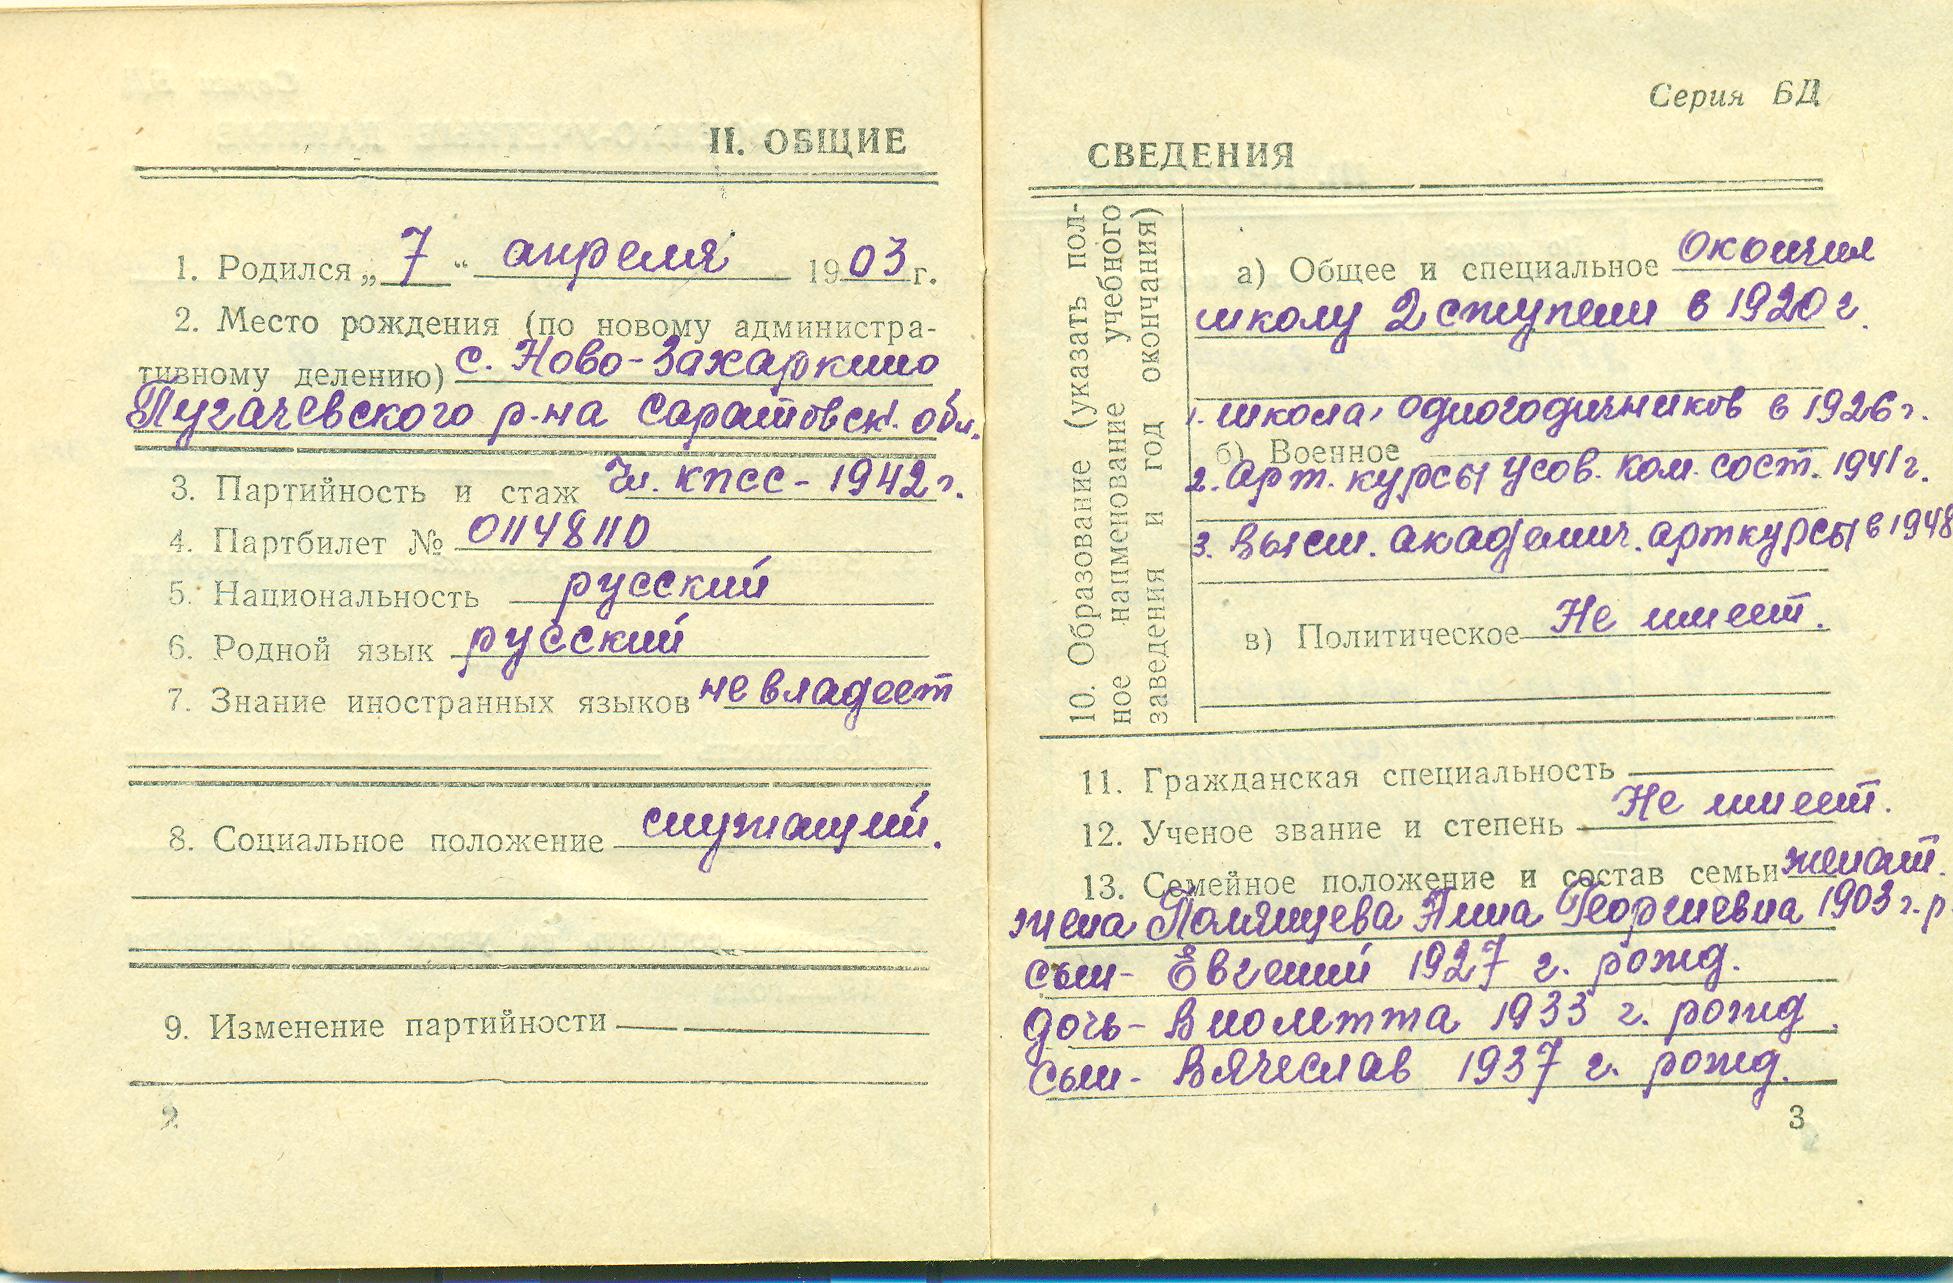 II. ОБЩИЕ
1. Родился „ 7 “ апреля 1903 г.
2. Место рождения (по новому администра-
тивному делению) с. Ново-Захаркино
Пугачевского р-на Саратовск. обл.
3. Партийность и стаж Чл. КПСС - 1942 г.
4. Партбилет № 01148110
5. Национальность русский
6. Родной язык русский
7. Знание иностранных языков не владеет
8. Социальное положение служащий.
9. Изменение партийности
2
Серия БД
СВЕДЕНИЯ
10. Образование (указать пол-
ное наименование учебного
заведения и год окончания)
а) Общее и специальное окончил
школу 2 ступени в 1920 г.
1. школа одногодичников в 1926 г.
б) Военное
2. арт. курсы усов. ком. сост. 1941 г.
3. высш. академич. арткурсы в 1948
в) Политическое Не имеет.
11. Гражданская специальность
12. Ученое звание и степень Не имеет.
13. Семейное положение и состав семьи женат.
жена Георгиевна 1903 г. р.
сын - Евгений 1927 г. рожд.
дочь - Виолетта 1933 г. рожд.
сын - Вячеслав 1937 г. рожд.
3